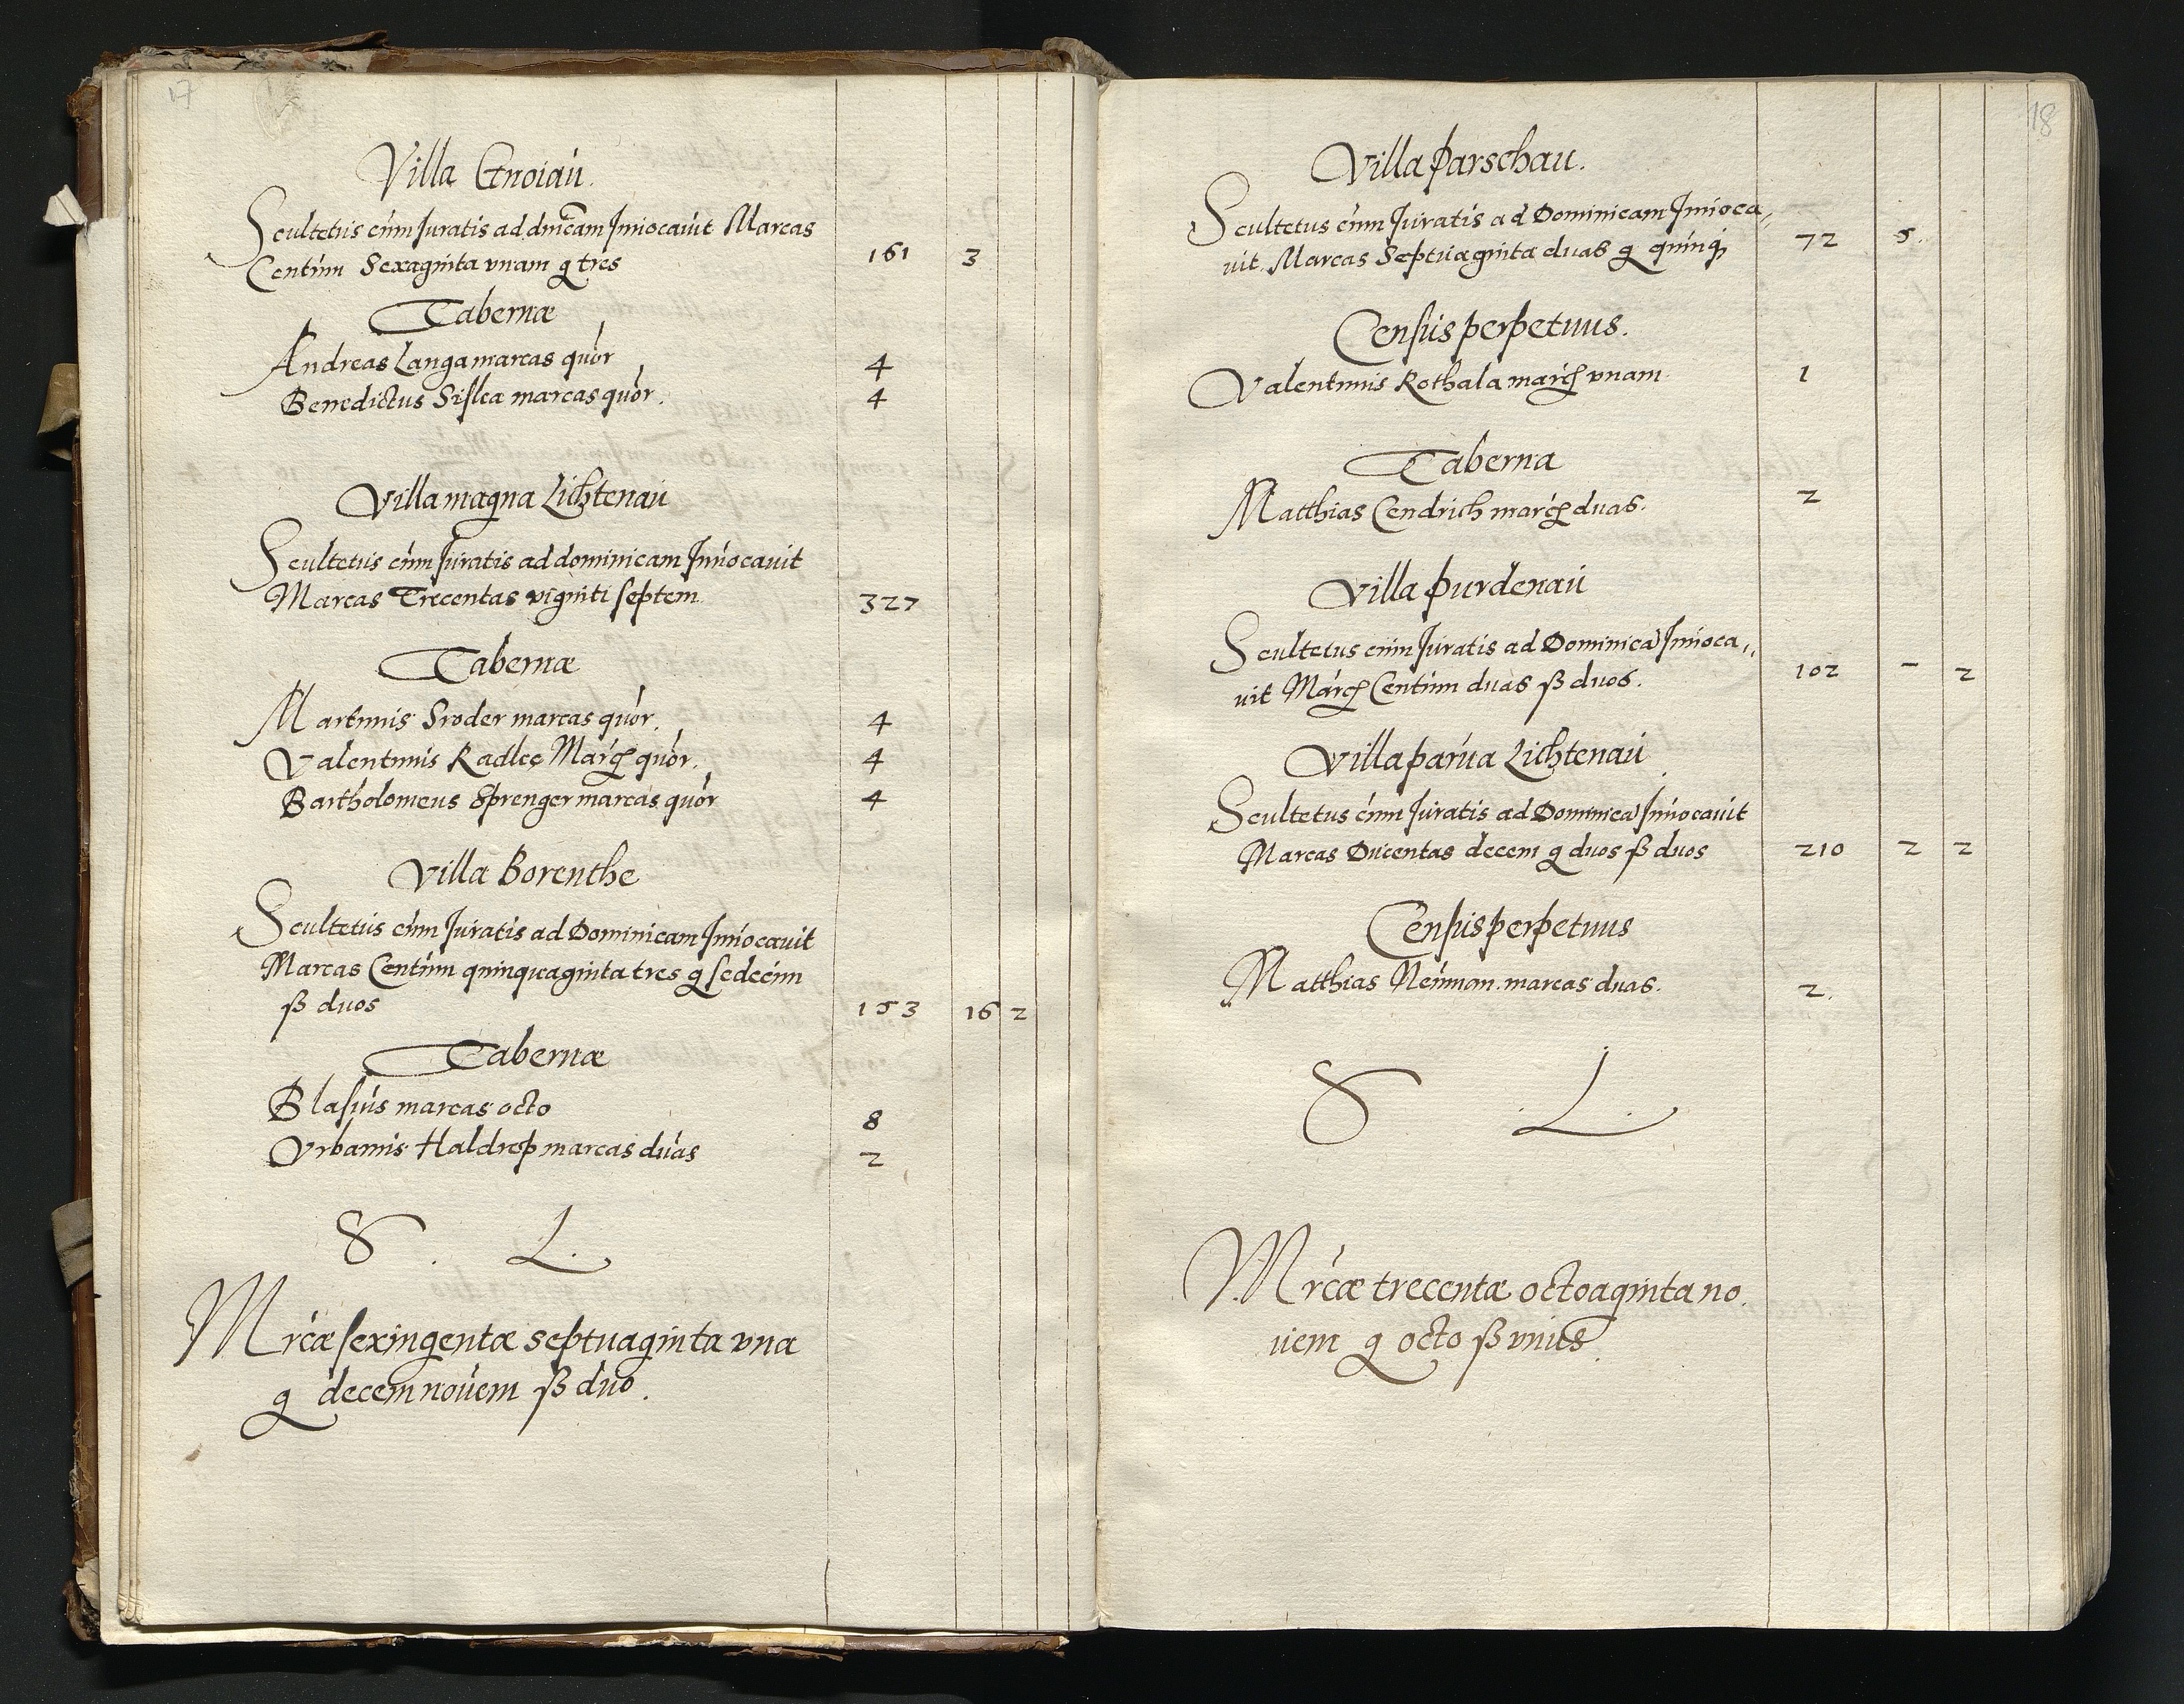 17
Villa Gnoiaú.
Scultetus cúm Juratis ad dnicam Jnúocauit Marcas
Centúm Sexaginta vnam g tres 161 3
Tabernæ
Andreas Langa marcas quòr 4
Benedictus Sislca marcas quòr. 4
Villa magna Lichtenaú
Scultetus cúm Júratis ad dominicam Jnúocauit
Marcas Trecentas viginti septem 327
Tabernæ
Martinus Sroder marcas quòr. 4
Valentinus Radlcę Marc quòr. 4
Bartholomeus Sprenger marcas quòr 4
Villa Borenthe
Scultetus cúm Júratis ad Dominicam Jnúocauit
Marcas Centúm quinquaginta tres g sedecim
ß duos 153 16 2
Tabernæ
Blasius marcas octo 8
Vrbanus Haldrep marcas duas 2
S. L.
Mrcæ sexingentæ septuaginta vna
g decem nouem ß duo.
18
Villa Parschau.
Scultetus cúm Júratis ad Dominicam Jnúoca„
uit Marcas Septuaginta duas g quinq 72 5.
Census perpetuus.
Valentinus Rothala marc vnam 1
Taberna
Matthias Cendrich marc duas. 2
Villa Purdenaú
Scultetus cúm Júratis ad Dominica Jnúoca„
uit Marc Centúm duas ß duos. 102 - 2
Villa parua Lichtenaú
Scultetus cúm Júratis ad Dominica Jnúocauit
Marcas Ducentas decem g duos ß duos 210 2 2
Census perpetuus
Matthias Neúman. marcas duas. 2.
S .L.
Mrcæ trecentæ octoaginta no
uem g octo ß vnus.